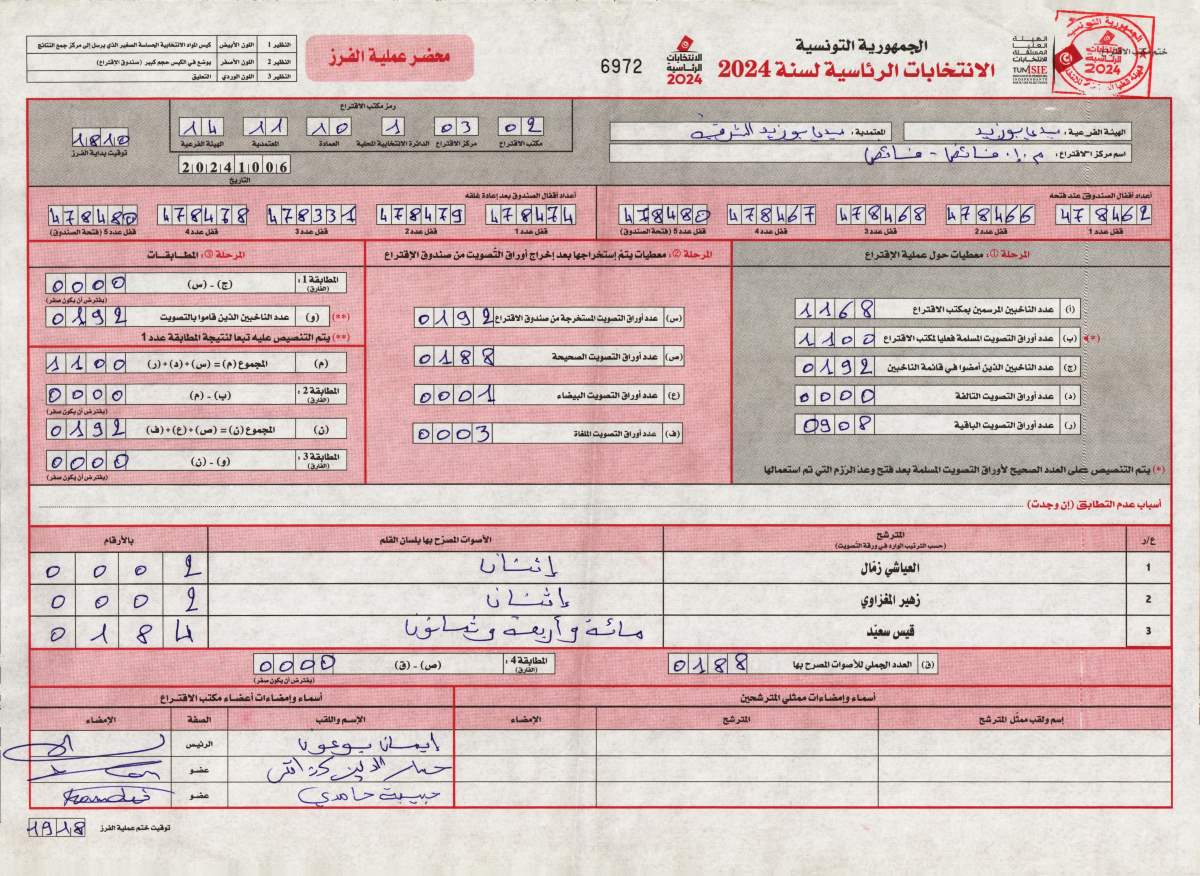 الجمهورية التونسية
الانتخابات الرئاسية لسنة 2024
الهيئة العليا المستقلة للانتخابات
الانتخابات الرئاسية 2024
6972
محضر عملية الفرز
النظير 1 اللون الأبيض كيس المواد الانتخابية الحساسة الصغير الذي يرسل إلى مركز جمع النتائج
النظير 2 اللون الأصفر يوضع في الكيس حجم كبير (صندوق الاقتراع)
النظير 3 اللون الوردي التعليق
الهيئة الفرعية: سيدي بوزيد المعتمدية: سيدي بوزيد الشرقية
اسم مركز الاقتراع: م.إ. فائض - فائض
رمز مكتب الاقتراع
02 03 1 10 11 14
مكتب الاقتراع مركز الاقتراع الدائرة الانتخابية المحلية العمادة المعتمدية الهيئة الفرعية
20241006
التاريخ
1810
توقيت بداية الفرز
أعداد أقفال الصندوق عند فتحه
478462 478466 478468 478467 478480
قفل عدد 1 قفل عدد 2 قفل عدد 3 قفل عدد 4 قفل عدد 5 (فتحة الصندوق)
أعداد أقفال الصندوق بعد إعادة غلقه
478474 478479 478331 478478 478480
قفل عدد 1 قفل عدد 2 قفل عدد 3 قفل عدد 4 قفل عدد 5 (فتحة الصندوق)
المرحلة ①: معطيات حول عملية الاقتراع
(أ) عدد الناخبين المرسمين بمكتب الاقتراع 1168
(*) (ب) عدد أوراق التصويت المسلمة فعليا لمكتب الاقتراع 1100
(ج) عدد الناخبين الذين أمضوا في قائمة الناخبين 0192
(د) عدد أوراق التصويت التالفة 0000
(ر) عدد أوراق التصويت الباقية 0908
(*) يتم التنصيص على العدد الصحيح لأوراق التصويت المسلمة بعد فتح وعدّ الرّزم التي تم استعمالها
المرحلة ②: معطيات يتم إستخراجها بعد إخراج أوراق التصويت من صندوق الإقتراع
(س) عدد أوراق التصويت المستخرجة من صندوق الاقتراع 0192
(ص) عدد أوراق التصويت الصحيحة 0188
(ع) عدد أوراق التصويت البيضاء 0001
(ف) عدد أوراق التصويت الملغاة 0003
المرحلة ③: المطابقات
المطابقة 1: (الفارق) (ج) - (س) 0000
(يفترض أن يكون صفر)
(**) (و) عدد الناخبين الذين قاموا بالتصويت 0192
(**) يتم التنصيص عليه تبعا لنتيجة المطابقة عدد 1
(م) المجموع (م) = (س)+(د)+(ر) 1100
المطابقة 2: (الفارق) (ب) - (م) 0000
(يفترض أن يكون صفر)
(ن) المجموع (ن) = (ص)+(ع)+(ف) 0192
المطابقة 3: (الفارق) (و) - (ن) 0000
(يفترض أن يكون صفر)
أسباب عدم التطابق (إن وجدت)
ع/ر المترشح (حسب الترتيب الوارد في ورقة التصويت) الأصوات المصرّح بها بلسان القلم بالأرقام
1 العياشي زمّال إثنان 0002
2 زهير المغزاوي إثنان 0002
3 قيس سعيّد مائة وأربعة وثمانون 0184
(ق) العدد الجملي للأصوات المصرح بها 0188
المطابقة 4: (الفارق) (ص) - (ق) 0000
(يفترض أن يكون صفر)
أسماء وإمضاءات ممثلي المترشحين
إسم ولقب ممثّل المترشح المترشح الإمضاء
أسماء وإمضاءات أعضاء مكتب الاقتراع
الإسم واللقب الصفة الإمضاء
الرئيس
عضو
حبيبة حامدي عضو
توقيت ختم عملية الفرز 1918